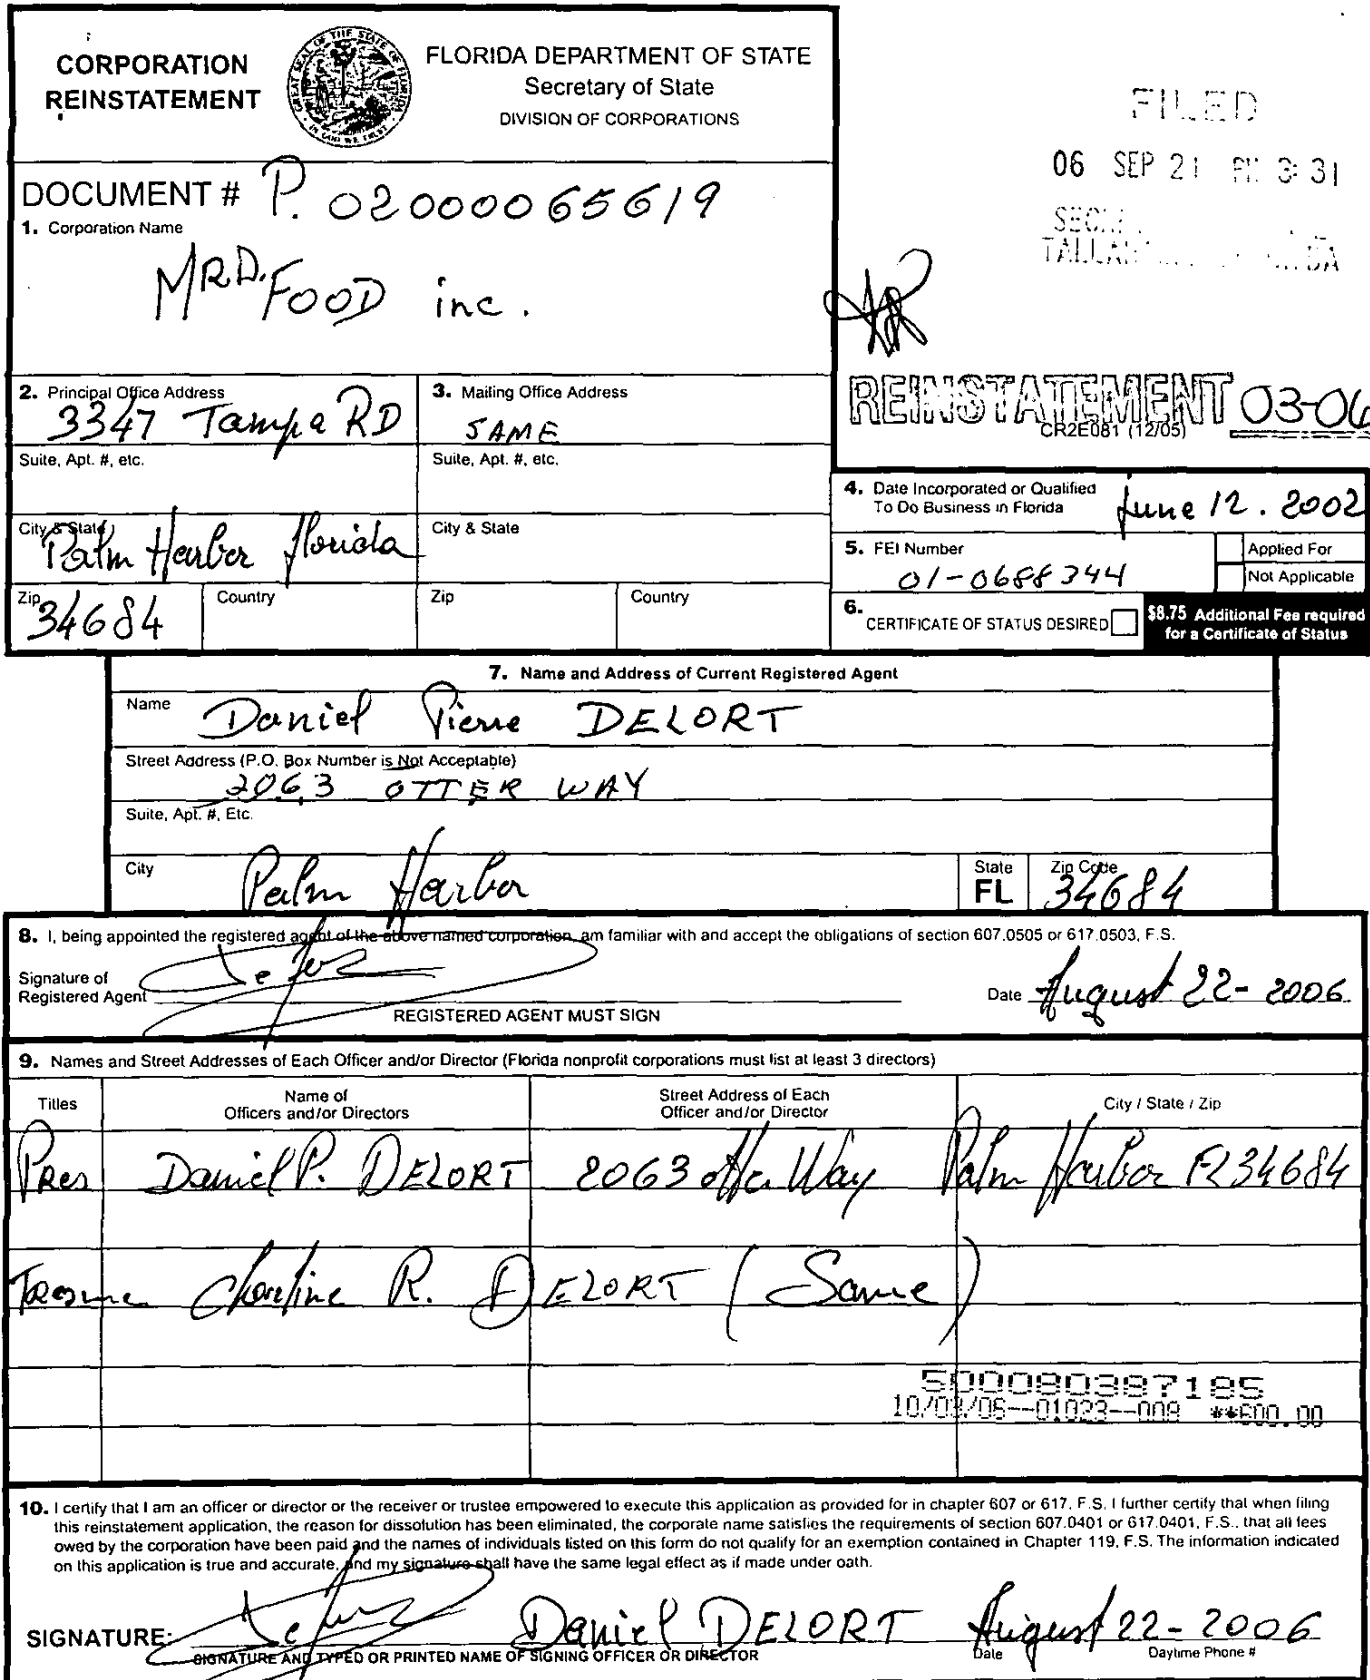 CORPORATION
REINSTATEMENT
GREAT SEAL OF THE STATE OF FLORIDA
IN GOD WE TRUST
FLORIDA DEPARTMENT OF STATE
Secretary of State
DIVISION OF CORPORATIONS
FILED
06 SEP 21 PM 3:31
DOCUMENT # P. 02000065619
1. Corporation Name
MR.D. FOOD inc.
REINSTATEMENT 03-06
CR2E081 (12/05)
2. Principal Office Address
3347 Tampa RD
3. Mailing Office Address
SAME
Suite, Apt. #, etc.
Suite, Apt. #, etc.
4. Date Incorporated or Qualified
To Do Business in Florida
June 12. 2002
City & State
Palm Harbor Florida
City & State
5. FEI Number
01-0688344
Applied For
Not Applicable
Zip
34684
Country
Zip
Country
6.
CERTIFICATE OF STATUS DESIRED
$8.75 Additional Fee required
for a Certificate of Status
7. Name and Address of Current Registered Agent
Name Daniel Pierre DELORT
Street Address (P.O. Box Number is Not Acceptable)
2063 OTTER WAY
Suite, Apt. #, Etc.
City Palm Harbor
State
FL
Zip Code
34684
8. I, being appointed the registered agent of the above named corporation, am familiar with and accept the obligations of section 607.0505 or 617.0503, F.S.
Signature of
Registered Agent
Date August 22-2006
REGISTERED AGENT MUST SIGN
9. Names and Street Addresses of Each Officer and/or Director (Florida nonprofit corporations must list at least 3 directors)
Titles
Name of
Officers and/or Directors
Street Address of Each
Officer and/or Director
City / State / Zip
Pres Daniel P. DELORT 2063 otter Way Palm Harbor FL 34684
R. DELORT (Same)
500080387185
10/03/06--01023--009 **600.00
10. I certify that I am an officer or director or the receiver or trustee empowered to execute this application as provided for in chapter 607 or 617, F.S. I further certify that when filing
this reinstatement application, the reason for dissolution has been eliminated, the corporate name satisfies the requirements of section 607.0401 or 617.0401, F.S., that all fees
owed by the corporation have been paid and the names of individuals listed on this form do not qualify for an exemption contained in Chapter 119, F.S. The information indicated
on this application is true and accurate, and my signature shall have the same legal effect as if made under oath.
SIGNATURE: Daniel DELORT August 22-2006
SIGNATURE AND TYPED OR PRINTED NAME OF SIGNING OFFICER OR DIRECTOR
Date
Daytime Phone #